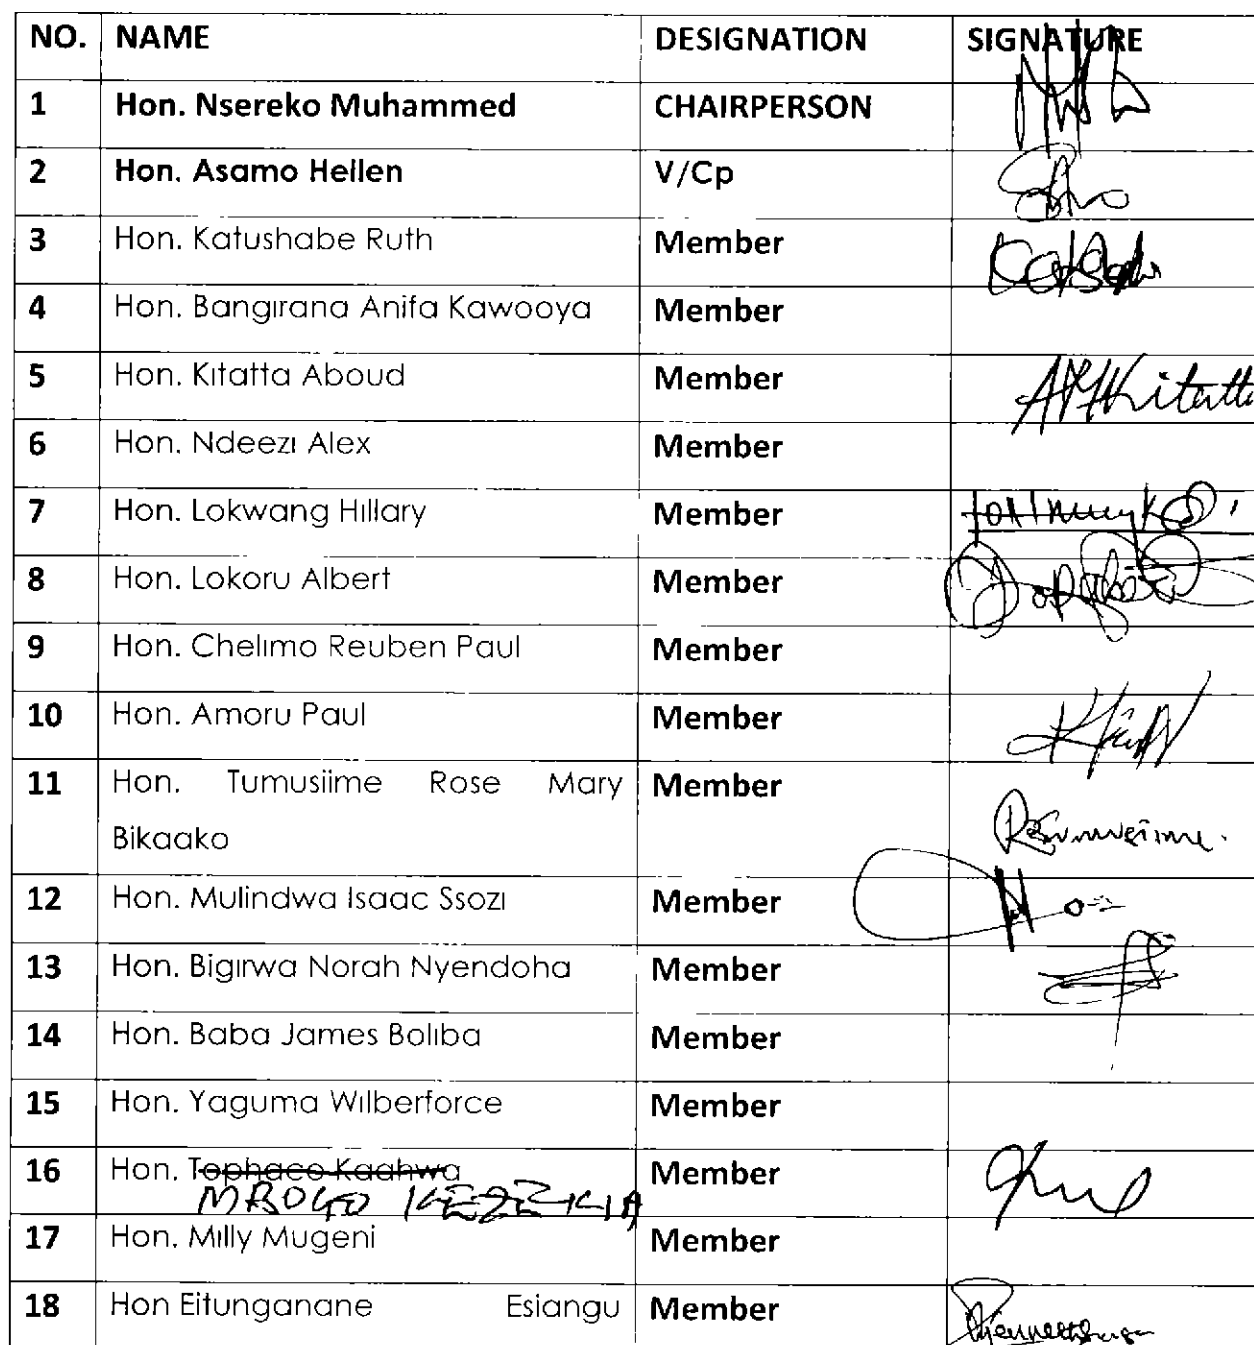 NO. NAME DESIGNATION SIGNATURE
1 Hon. Nsereko Muhammed CHAIRPERSON
2 Hon. Asamo Hellen V/Cp
3 Hon. Katushabe Ruth Member
4 Hon. Bangirana Anifa Kawooya Member
5 Hon. Kitatta Aboud Member
6 Hon. Ndeezi Alex Member
7 Hon. Lokwang Hillary Member
8 Hon. Lokoru Albert Member
9 Hon. Chelimo Reuben Paul Member
10 Hon. Amoru Paul Member
11 Hon. Tumusiime Rose Mary Member
Bikaako
12 Hon. Mulindwa Isaac Ssozi Member
13 Hon. Bigirwa Norah Nyendoha Member
14 Hon. Baba James Boliba Member
15 Hon. Yaguma Wilberforce Member
16 Hon. Tophace Kaahwa Member
MBOGO KEZEKIA
17 Hon. Milly Mugeni Member
18 Hon Eitunganane Esiangu Member